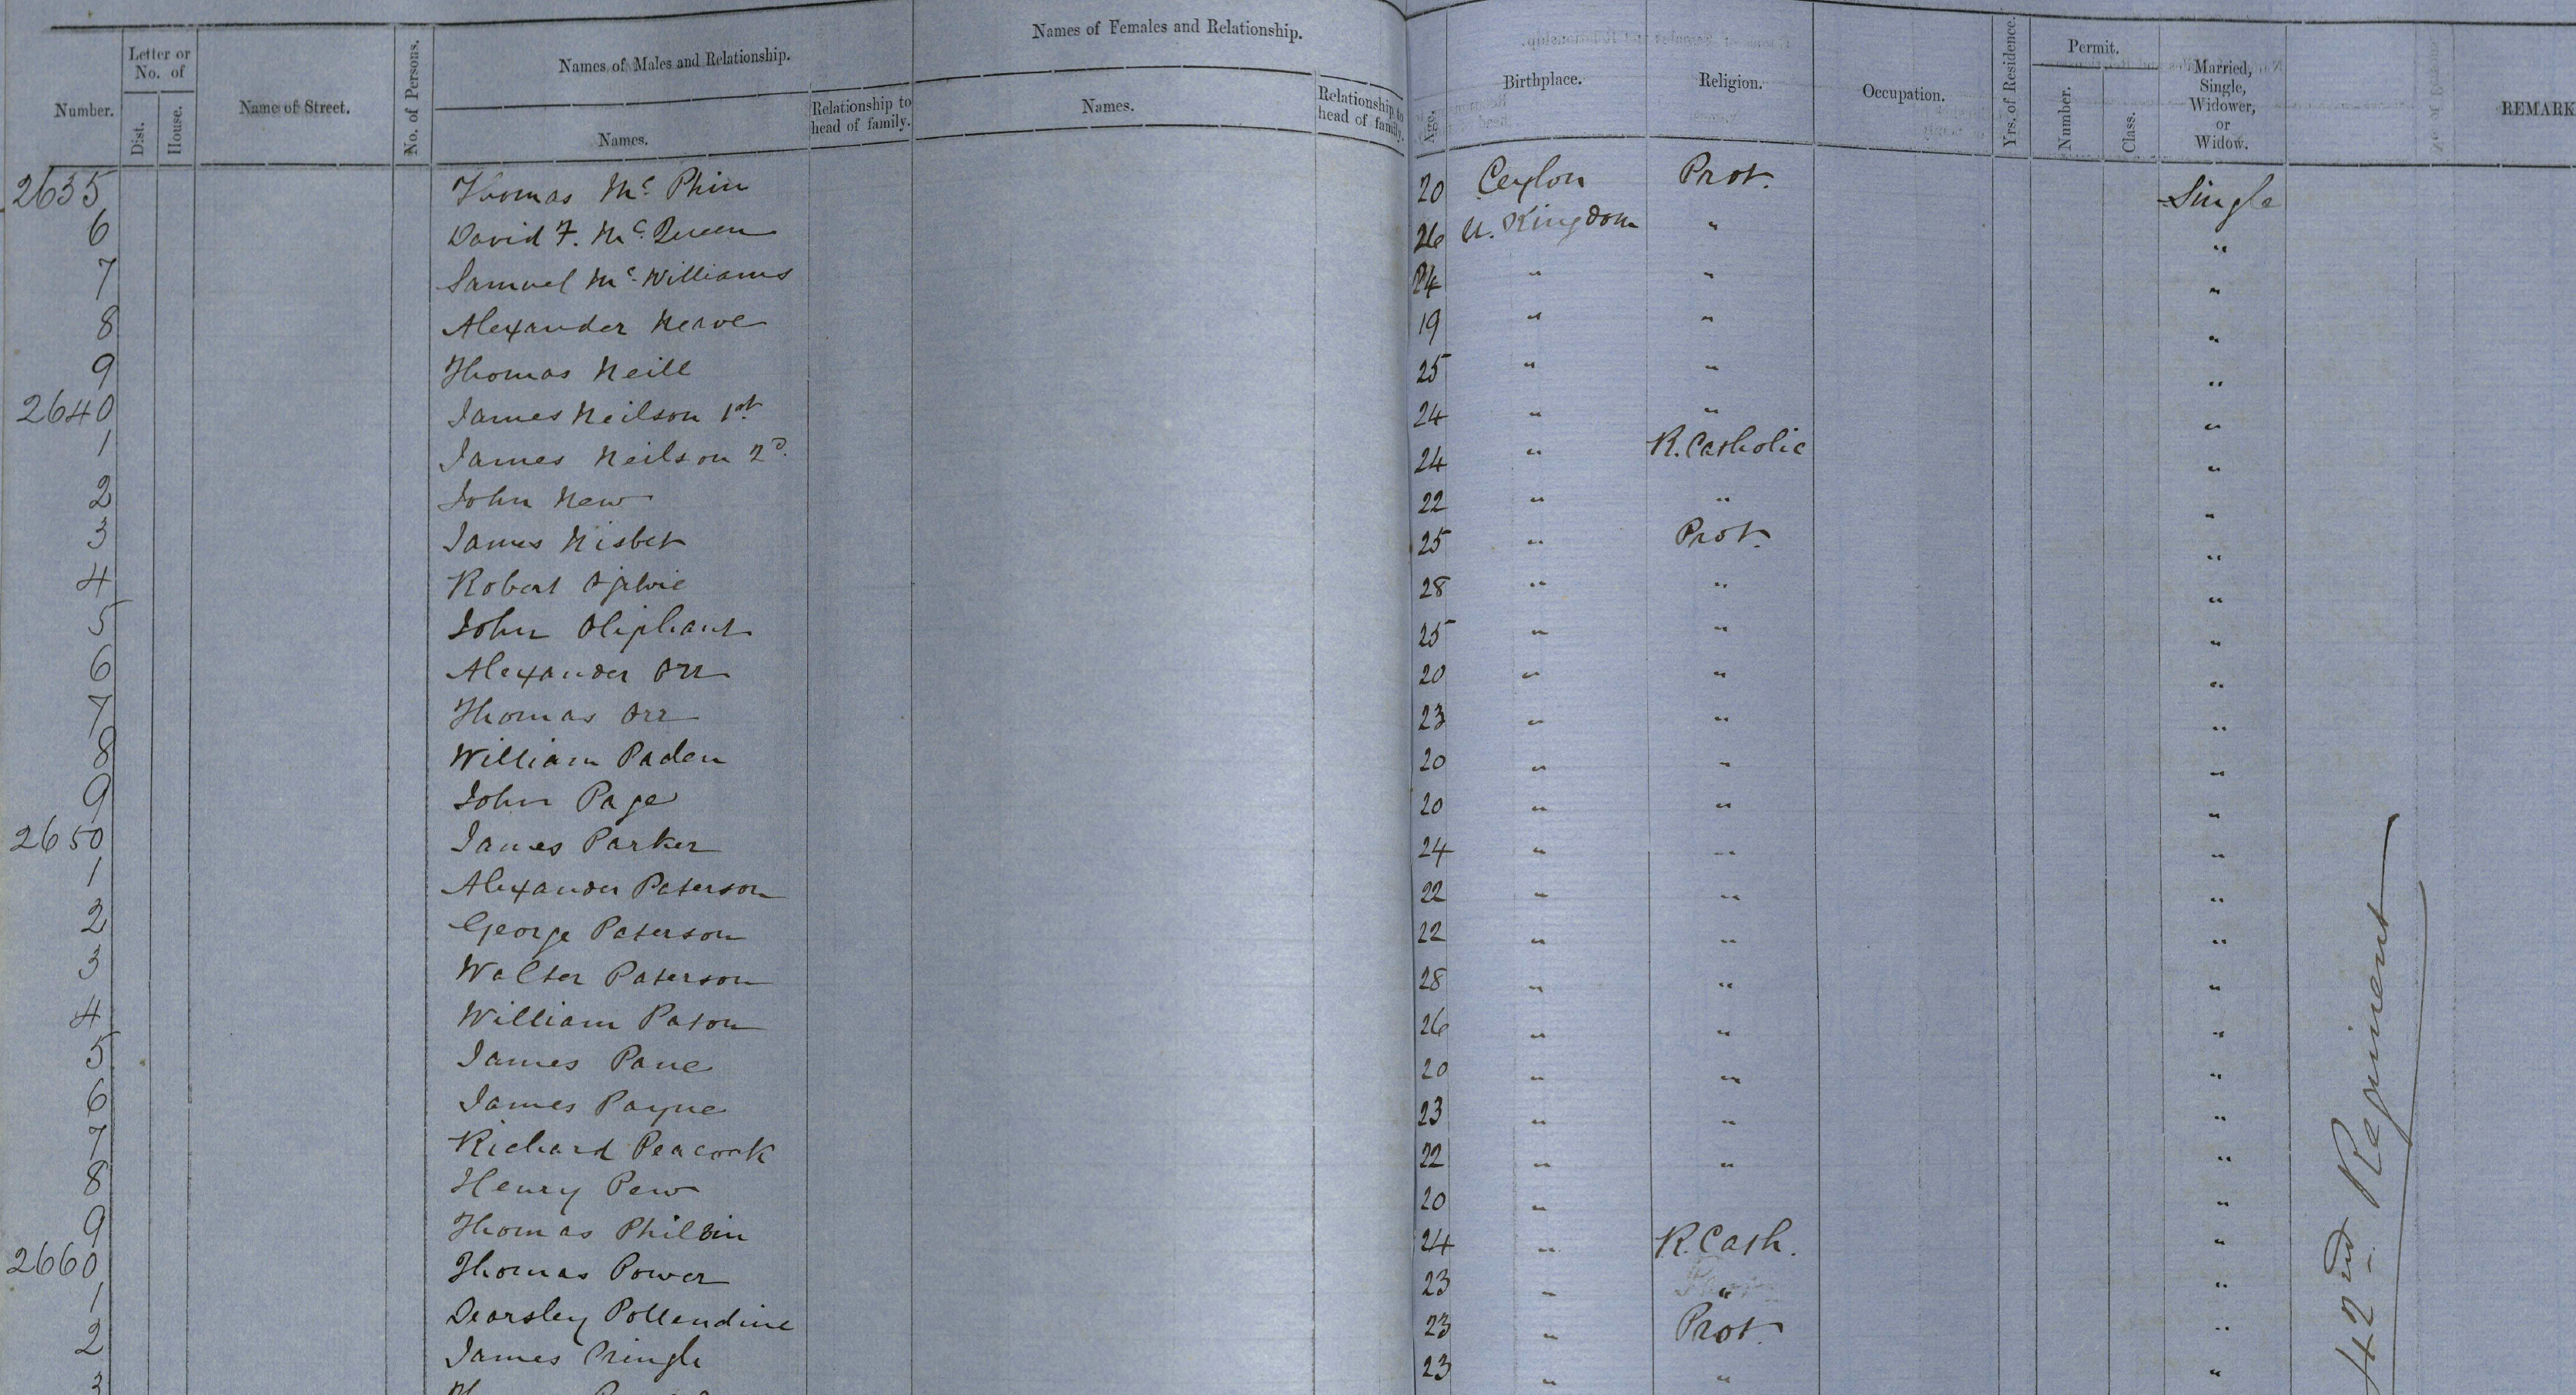 Number. Letter or No. of Dist. House. Name of Street. No. of Persons. Names of Males and Relationship. Names. Relationship to head of family. Names of Females and Relationship. Names. Relationship to head of family. Age. Birthplace. Religion. Occupation. Yrs. of Residence. Permit. Number. Class. Married, Single, Widower, or Widow. REMARK
2635 Thomas Mc. Phin 20 Ceylon Prot. Single
6 David F. Mc. Queen 26 U. Kingdom " "
7 Samuel Mc. Williams 24 " " "
8 Alexander Neave 19 " " "
9 Thomas Neill 25 " " "
2640 James Neilson 1st 24 " " "
1 James Neilson 2d. 24 " R. Catholic "
2 John New 22 " " "
3 James Nisbet 25 " Prot. "
4 Robert Ogilvie 28 " " "
5 John Oliphant 25 " " "
6 Alexander Orr 20 " " "
7 Thomas Orr 23 " " "
8 William Paden 20 " " "
9 John Page 20 " " "
2650 James Parker 24 " " "
1 Alexander Paterson 22 " " "
2 George Paterson 22 " " "
3 Walter Paterson 28 " " "
4 William Paton 26 " " "
5 James Pane 20 " " "
6 James Payne 23 " " "
7 Richard Peacock 22 " " "
8 Henry Pew 20 " "
9 Thomas Philbin 24 " R. Cath. "
2660 Thomas Power 23 " " "
1 Dearsley Pollendine 23 " Prot. "
2 James Pringle 23 " " "
3
42nd Regiment